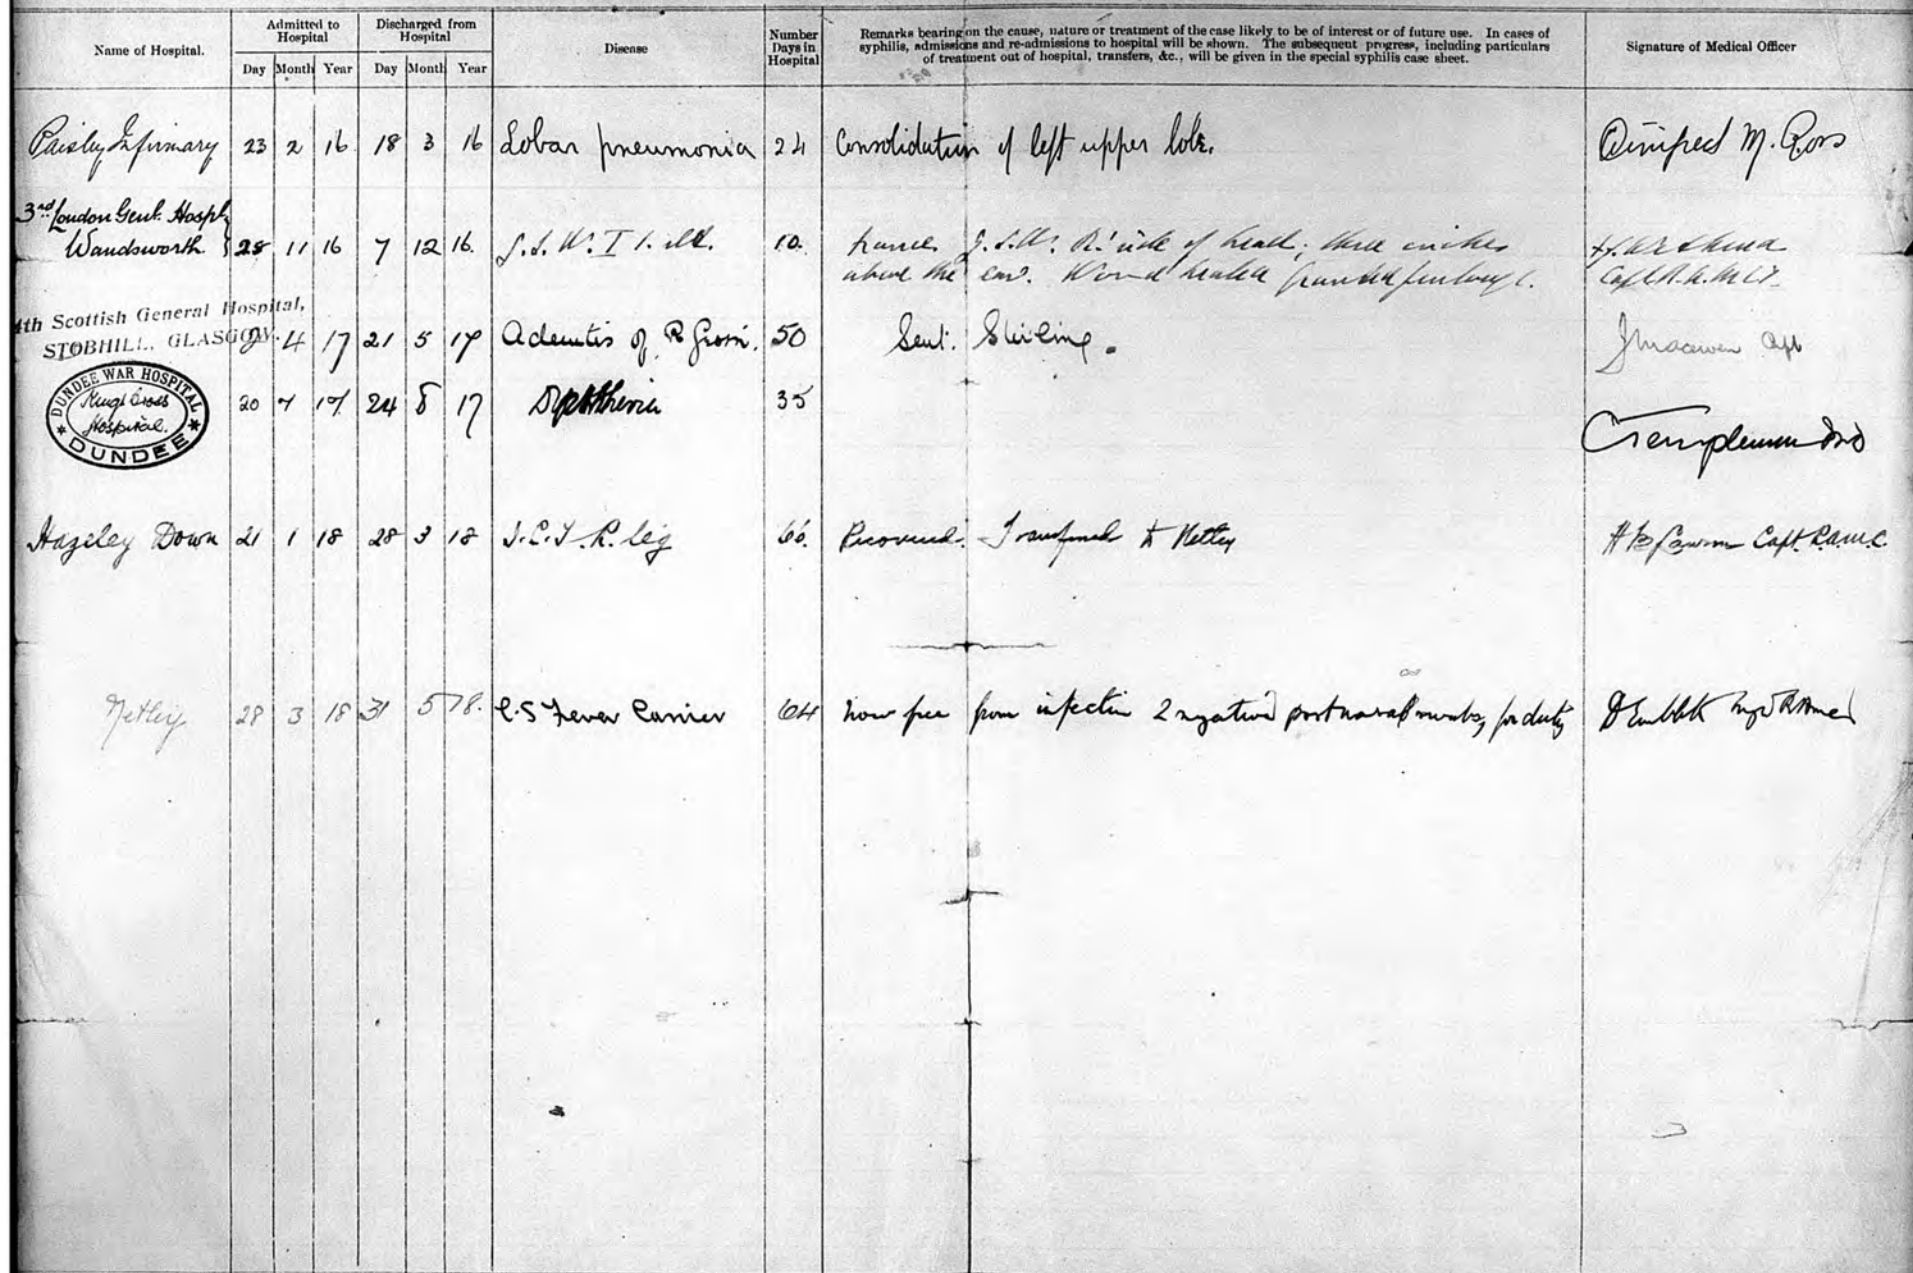 Name of Hospital.
Admitted to Hospital
Discharged from Hospital
Disease
Number Days in Hospital
Remarks bearing on the cause, nature or treatment of the case likely to be of interest or of future use. In cases of
syphilis, admissions and re-admissions to hospital will be shown. The subsequent progress, including particulars
of treatment out of hospital, transfers, &c., will be given in the special syphilis case sheet.
Signature of Medical Officer
Day Month Year Day Month Year
Paisley Infirmary 23 2 16 18 3 16 Lobar pneumonia 24 Consolidation of left upper lobe. Winifred M. Ross
3rd London Genl. Hospl
Wandsworth 28 11 16 7 12 16. 10. G.S.W. Rt side of head; three inches
above the ear. Wound healed granted furlough.
4th Scottish General Hospital,
STOBHILL. GLASGOW. 2 4 17 21 5 17 Adenitis of R Groin. 50 Sent: Stirling. J Macewen Capt
DUNDEE WAR HOSPITAL
Kings Cross
Hospital.
DUNDEE
20 7 17 24 8 17 Diphtheria 35 Templeman MD
Hazeley Down 21 1 18 28 3 18 I.C.T. R. leg 66. Recovered. Transferred to Netley Capt. R.A.M.C.
Netley 28 3 18 31 5 18. C.S Fever Carrier 64 now free from infection 2 negative post nasal swabs, for duty